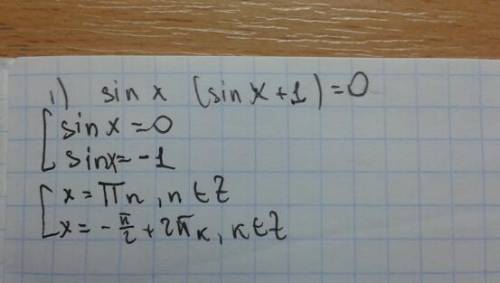 1) sin x (sin x + 1) = 0
[ sin x = 0
sin x = -1
[ x = πn, n ∈ Z
x = -π/2 + 2πk, k ∈ Z